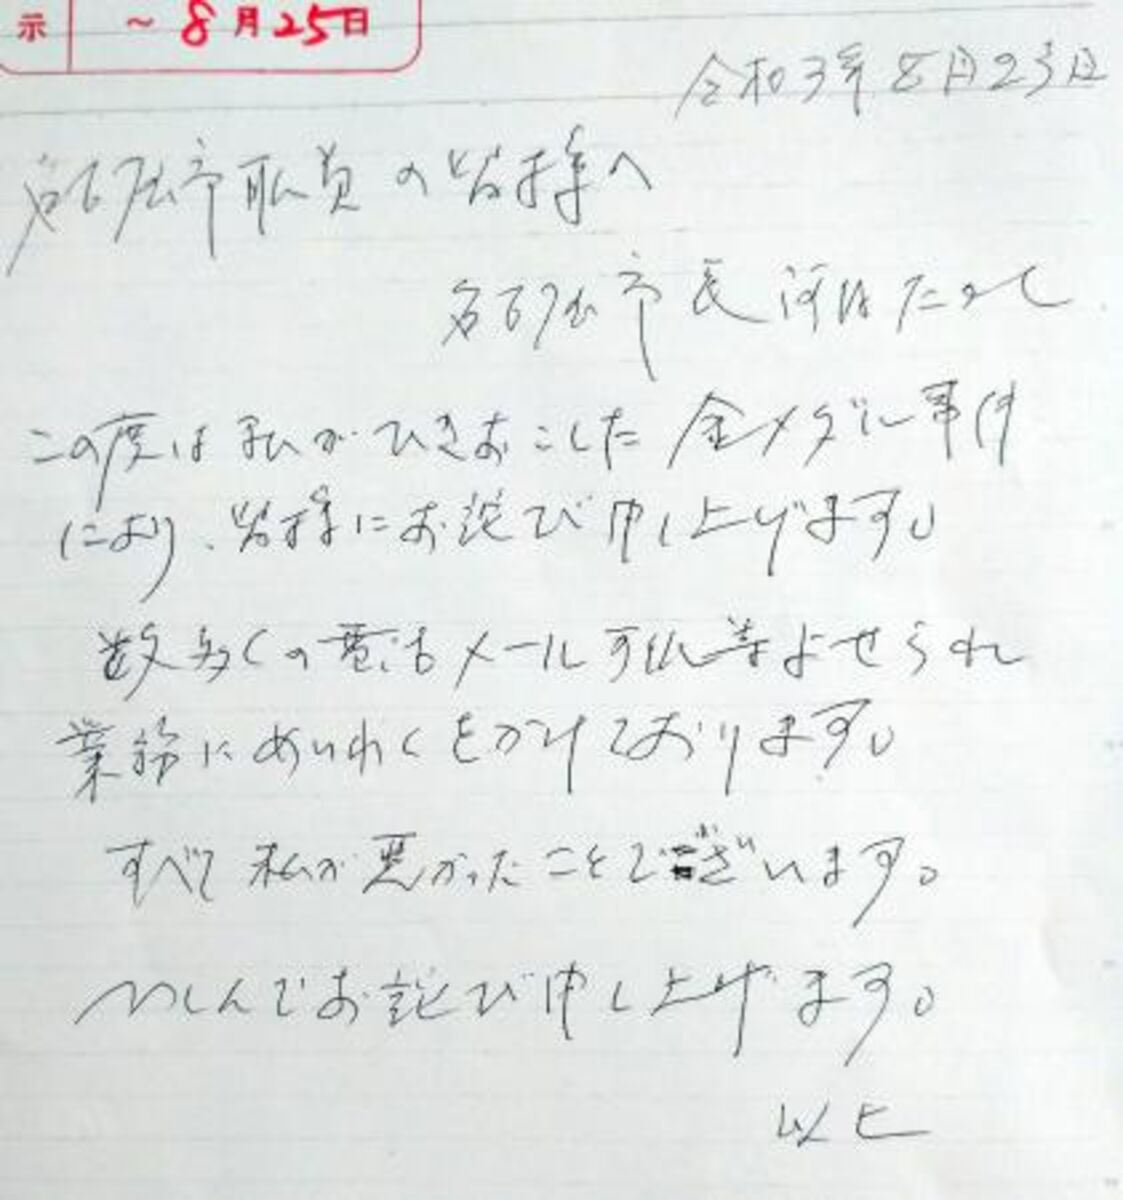 示 ～8月25日
令和3年8月23日
名古屋市職員の皆様へ
名古屋市長 河村たかし
この度は私がひきおこした金メダル事件
により、皆様にお詫び申し上げます。
数多くの電話メール手紙等よせられ
業務にめいわくをかけております。
すべて私が悪かったことでございます。
つつしんでお詫び申し上げます。
以上